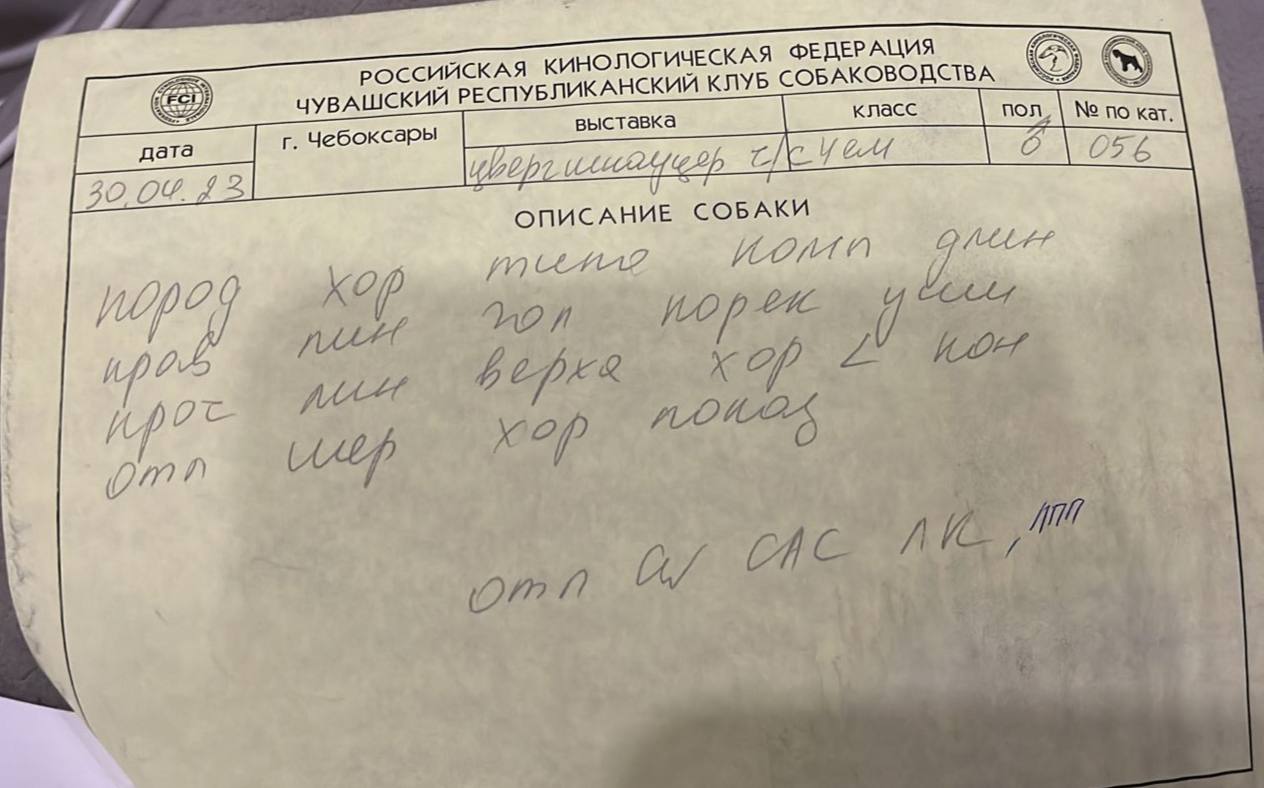 РОССИЙСКАЯ КИНОЛОГИЧЕСКАЯ ФЕДЕРАЦИЯ
ЧУВАШСКИЙ РЕСПУБЛИКАНСКИЙ КЛУБ СОБАКОВОДСТВА
FCI
дата
г. Чебоксары
выставка
класс
пол
№ по кат.
30.04.23
цвергшнауцер ч/с чем
♂
056
ОПИСАНИЕ СОБАКИ
пород хор типа комп длин
прав лин гол порек уши
проч лин верха хор < кон
отл шер хор показ
отл CW CAC ЛК, ЛПП